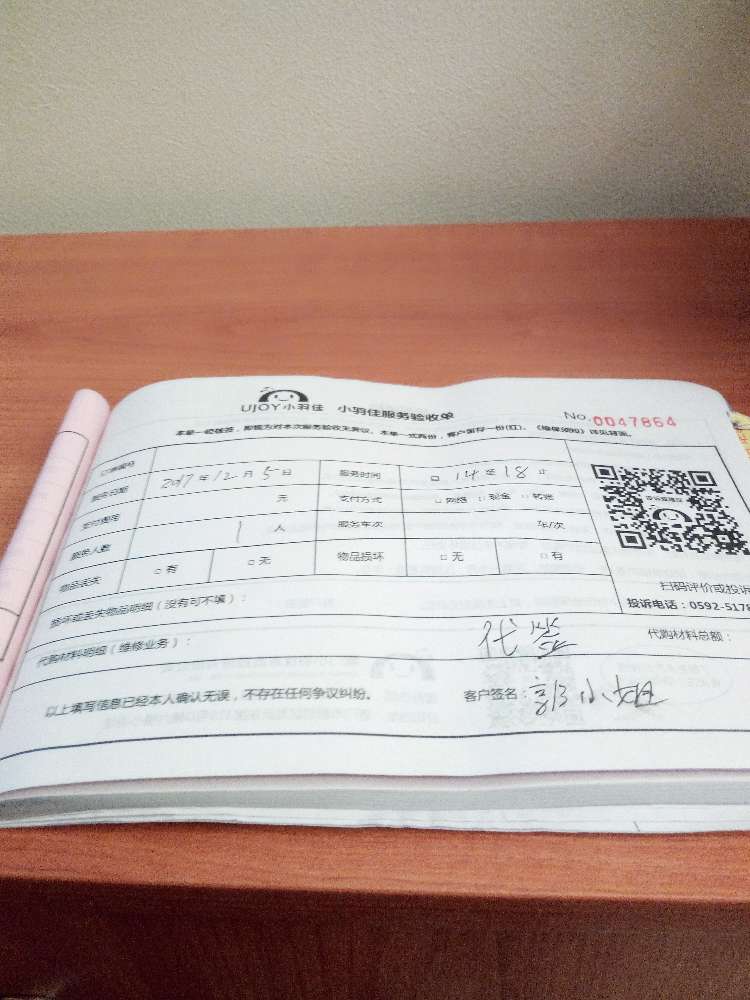 UJOY小羽佳 小羽佳服务验收单 No.0047864
本单一经签字，即视为对本次服务验收无异议。本单一式两份，客户留存一份(红)。《维保须知》详见背面。
订单编号
服务日期 2017年12月5日 服务时间 14至18止
支付费用 元 支付方式 □网络 □现金 □转账
服务人数 1人 服务车次 车/次
物品丢失 □有 □无 物品损坏 □无 □有
损坏或丢失物品明细（没有可不填）：
扫码评价或投诉
投诉电话：0592-5178
代购材料明细（维修业务）：
代购材料总额：
代签
以上填写信息已经本人确认无误，不存在任何争议纠纷。 客户签名：郭小姐